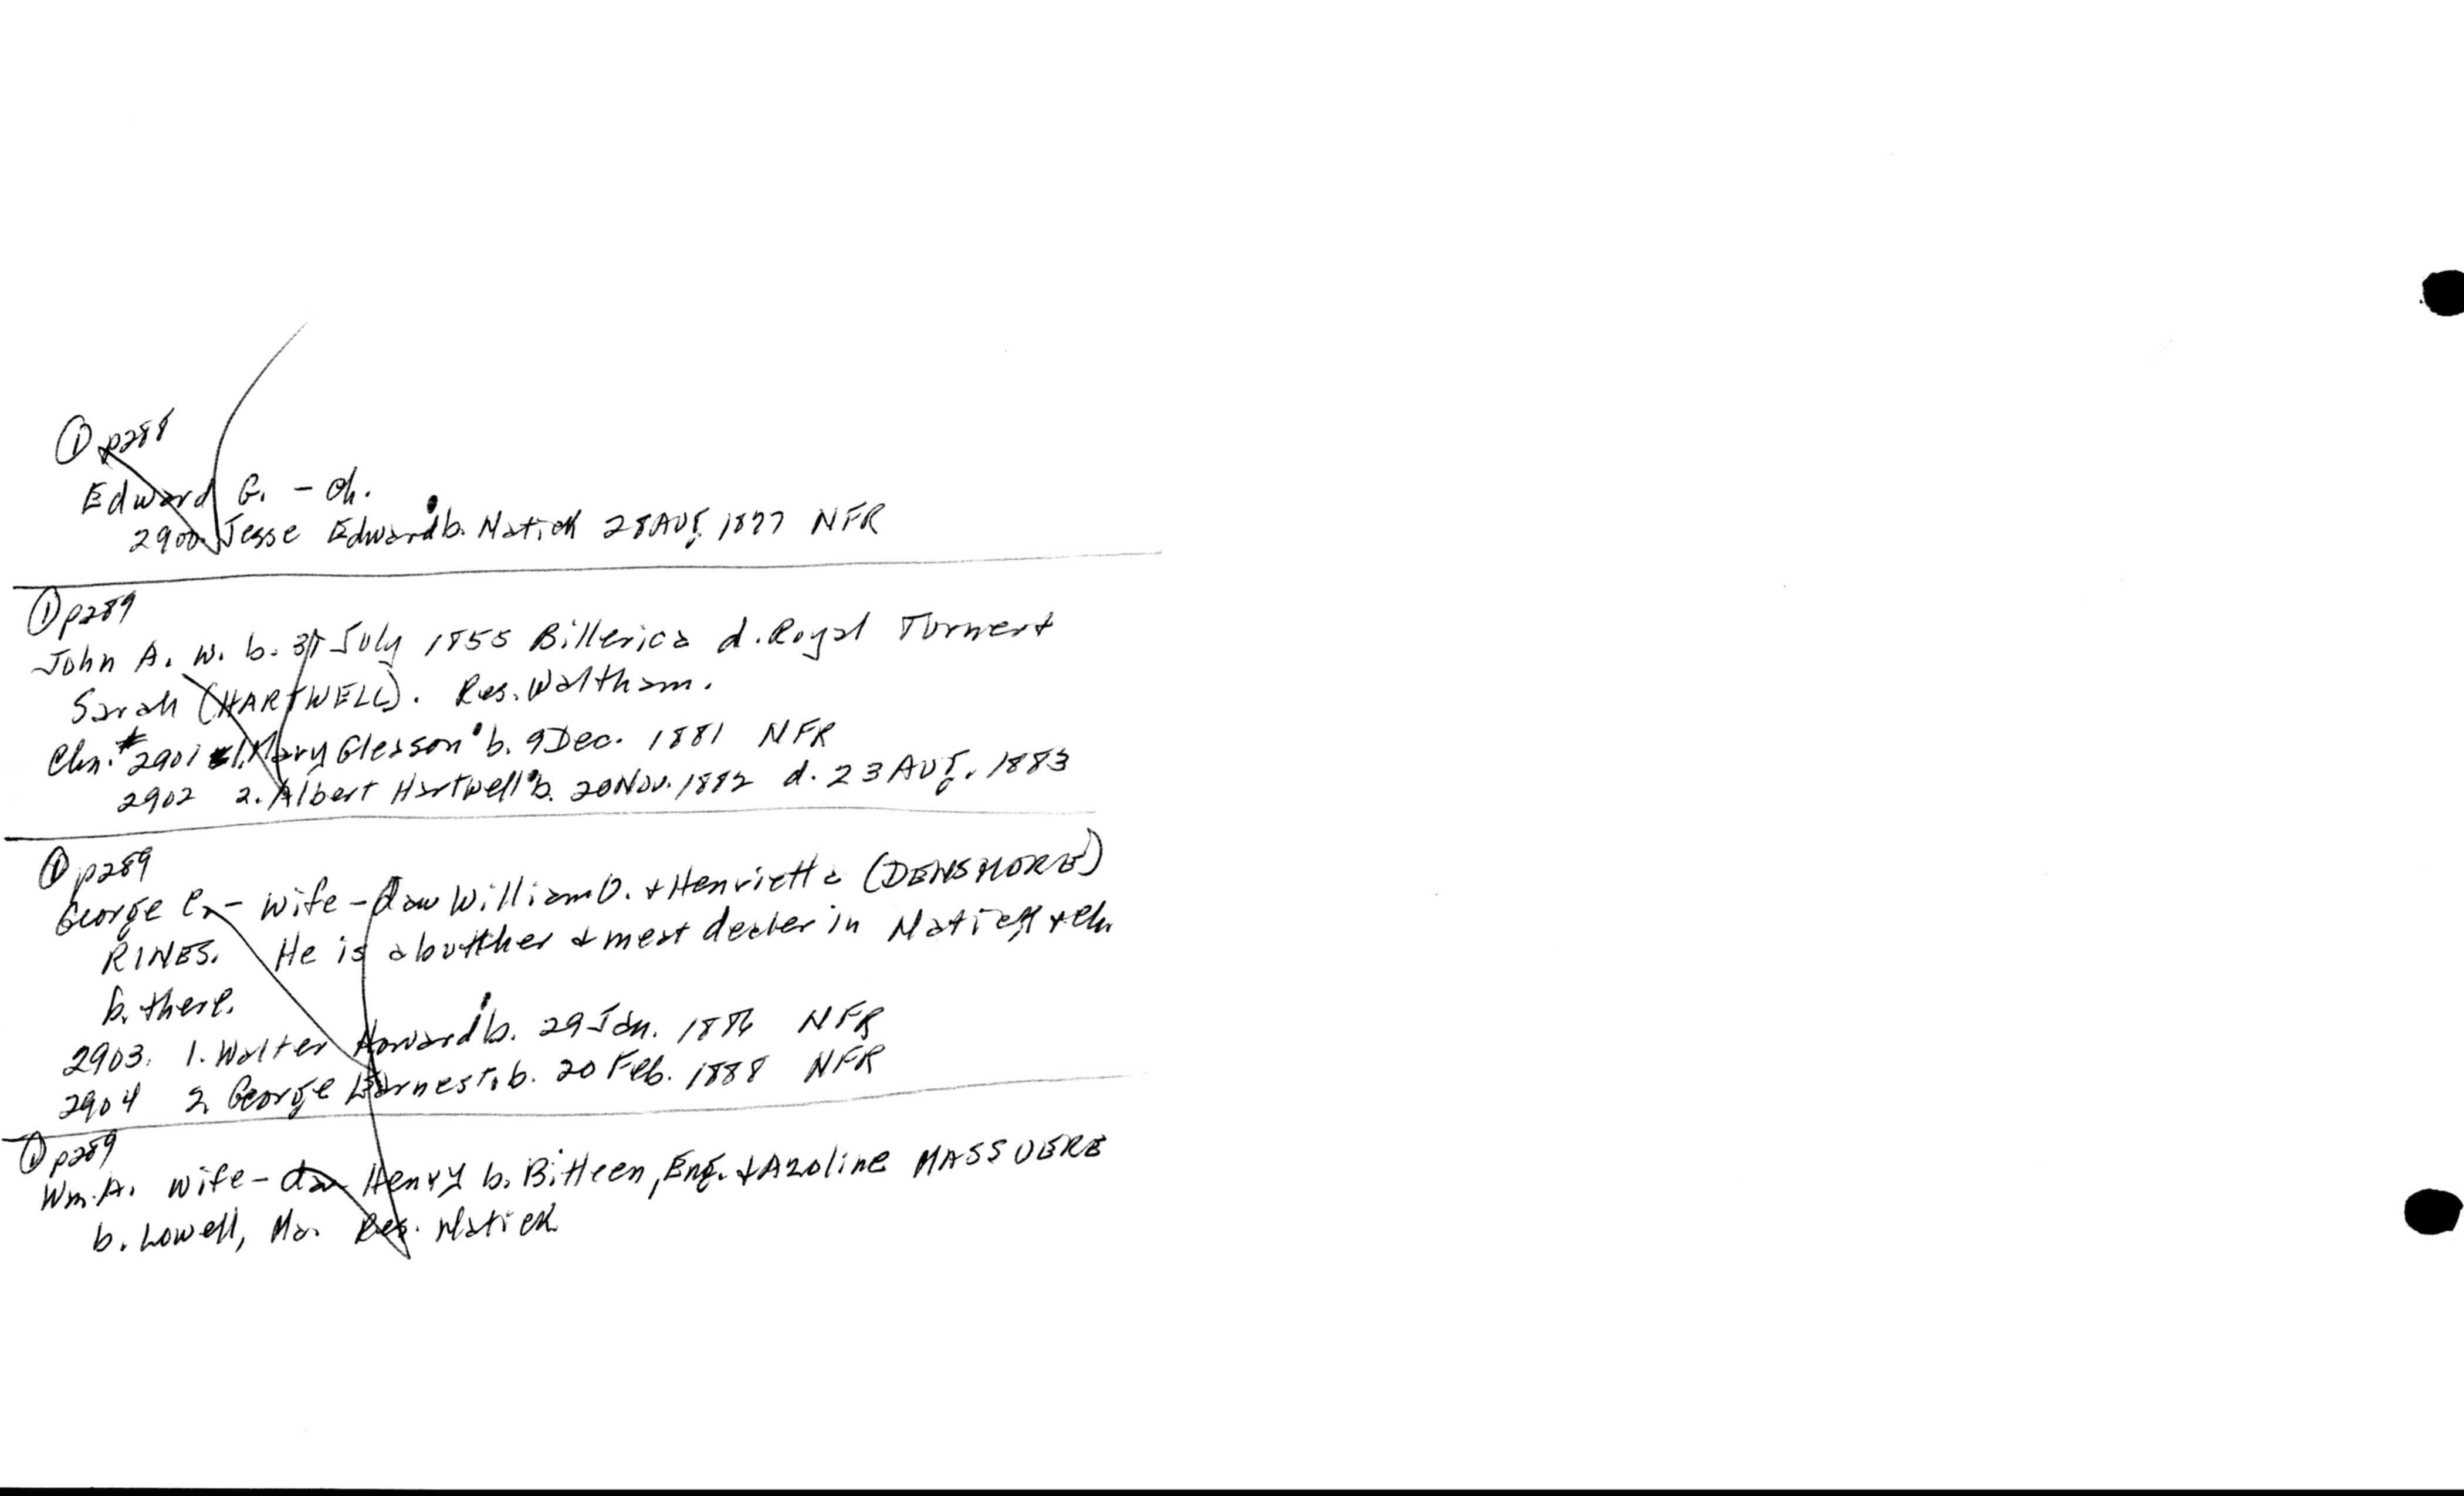 ① p288
Edward G. - ch.
2900. Jesse Edward b. Natick 28 Aug. 1877 NFR
① p289
John A. w. b. 31 July 1855 Billerica d. Royal Turner +
Sarah (HARTWELL). Res. Waltham.
Chn. #2901 1. Mary Gleason b. 9 Dec. 1881 NFR
2902 2. Albert Hartwell b. 20 Nov. 1882 d. 23 Aug. 1883
① p289
George C. - wife - dau William O. + Henrietta (DENSMORE)
RINES. He is a butcher & meat dealer in Natick + ch
b. there.
2903. 1. Walter Howard b. 29 Jan. 1886 NFR
2904 2. George Earnest b. 20 Feb. 1888 NFR
① p289
Wm. A. wife - da Henry b. Eng. + Azoline MASSUERE
b. Lowell, Ma. Res. Natick